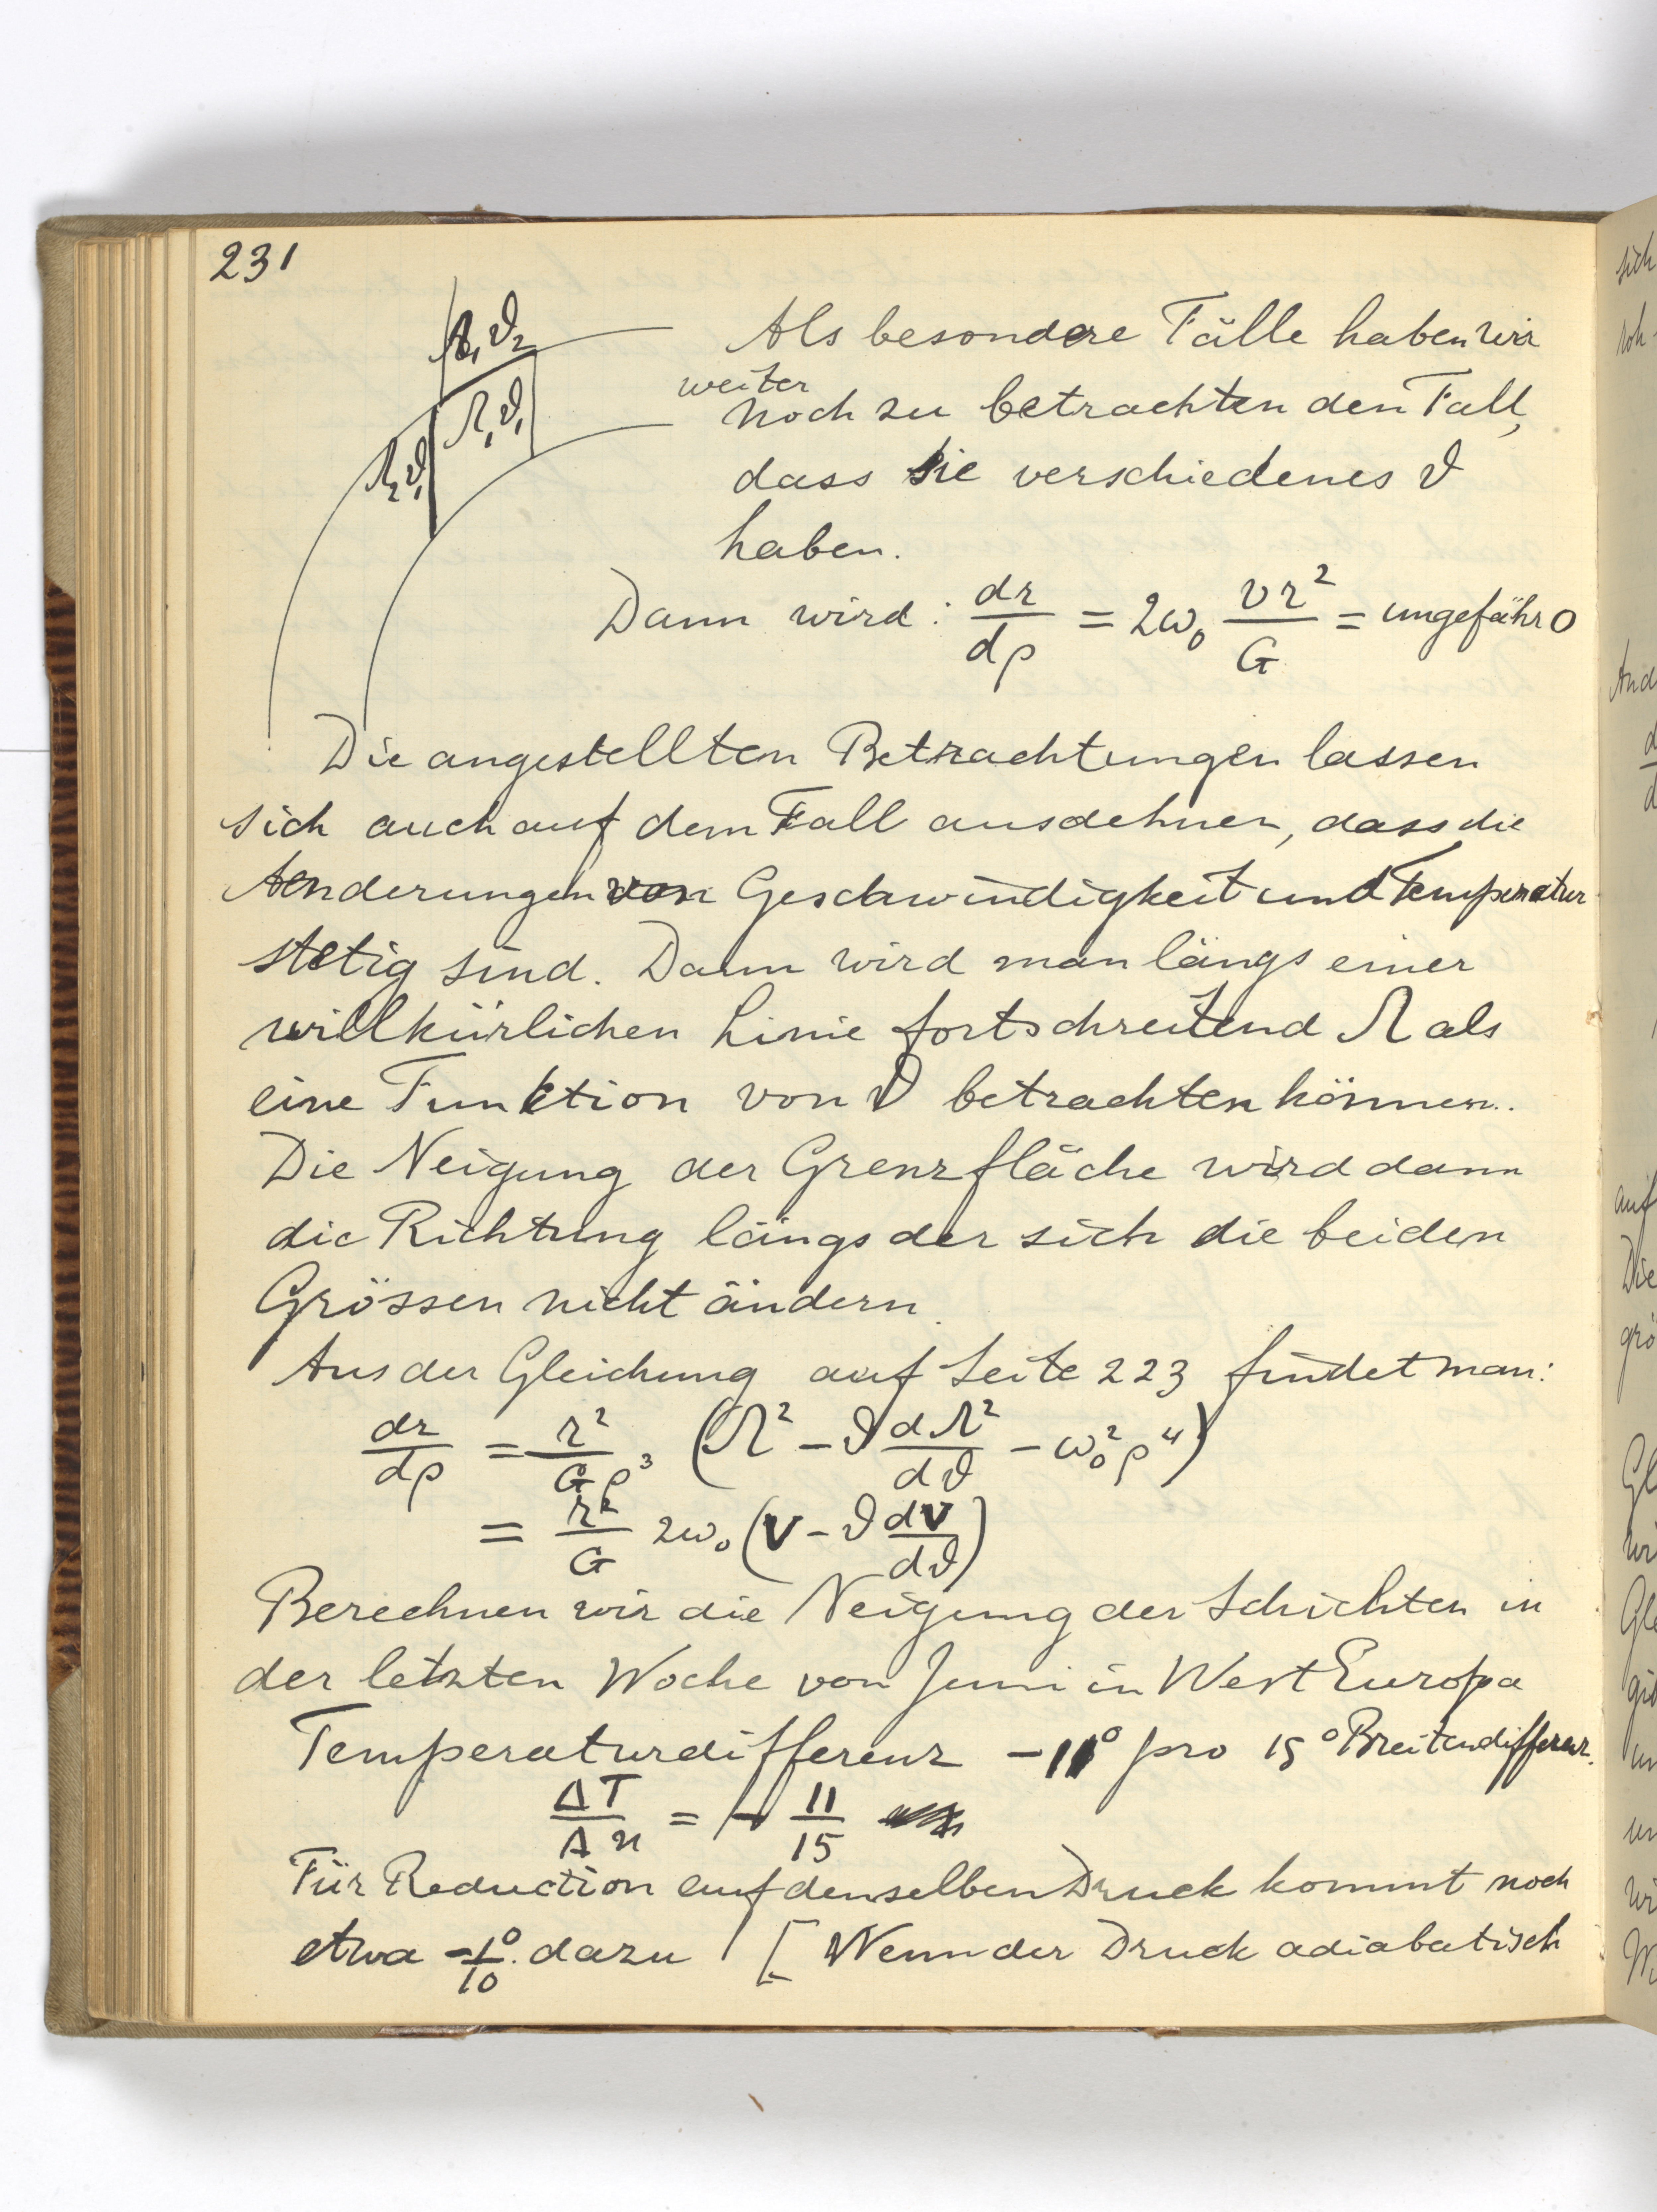 231
Ω₁ϑ₂
Ω₁ϑ₁
Ω₂ϑ₁
Als besondere Fälle haben wir
weiter
noch zu betrachten den Fall,
dass sie verschiedenes ϑ
haben.
Dann wird: dr/dρ = 2ω₀ vr²/G = ungefähr 0
Die angestellten Betrachtungen lassen
sich auch auf dem Fall ausdehnen, dass die
Aenderungen von Geschwindigkeit und Temperatur
stetig sind. Dann wird man längs einer
willkürlichen Linie fortschreitend Ω als
eine Funktion von ϑ betrachten können.
Die Neigung der Grenzfläche wird dann
die Richtung längs der sich die beiden
Grössen nicht ändern.
Aus der Gleichung auf Seite 223 findet man:
dr/dρ = r²/Gρ³ (Ω² – ϑ dΩ²/dϑ – ω₀²ρ⁴)
= r²/G 2ω₀ (v – ϑ dv/dϑ)
Berechnen wir die Neigung der Schichten in
der letzten Woche von Juni in West Europa
Temperaturdifferenz –11° pro 15° Breitendifferenz.
ΔT/Δn = – 11/15
Für Reduction auf denselben Druck kommt noch
etwa –1°/10. dazu [Wenn der Druck adiabatisch